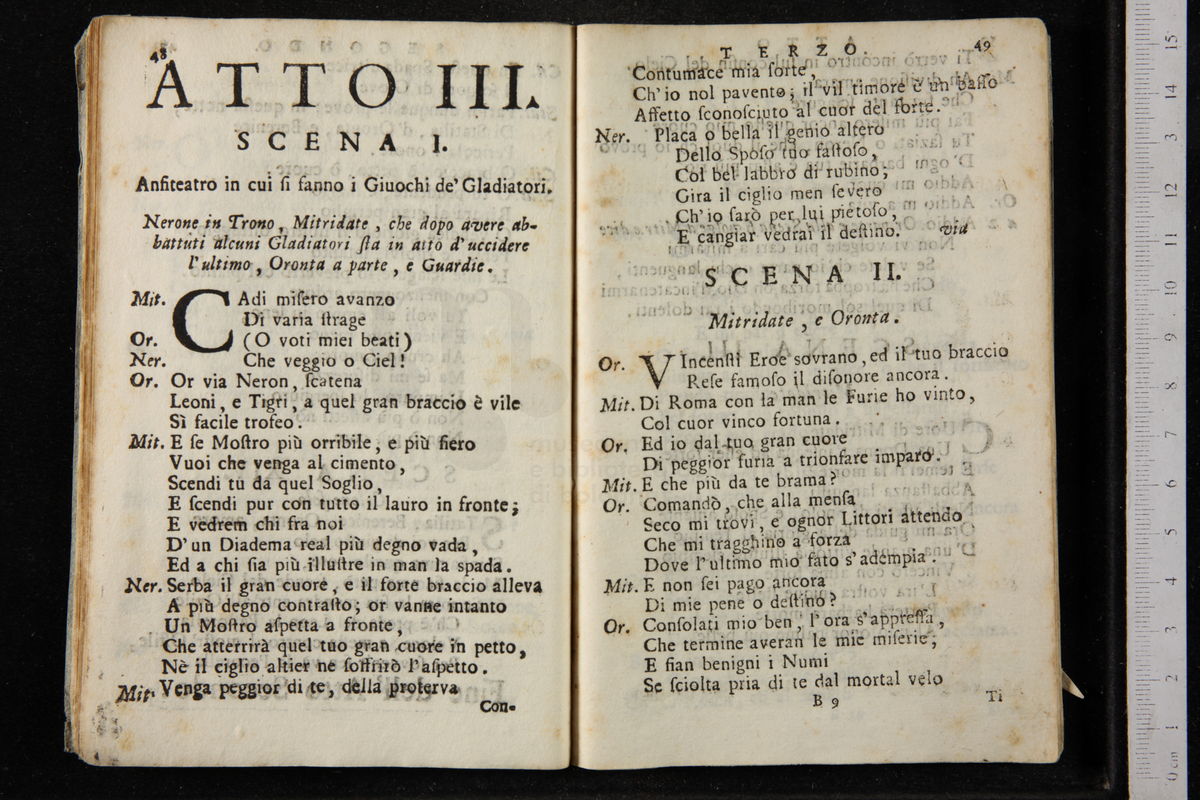 48
ATTO III.
SCENA I.
Anfiteatro in cui ſi fanno i Giuochi de' Gladiatori.
Nerone in Trono, Mitridate, che dopo avere ab-
battuti alcuni Gladiatori ſta in atto d'uccidere
l'ultimo, Oronta a parte, e Guardie.
Mit. CAdi miſero avanzo
Di varia ſtrage
Or. (O voti miei beati)
Ner. Che veggio o Ciel!
Or. Or via Neron, ſcatena
Leoni, e Tigri, a quel gran braccio è vile
Sì facile trofeo.
Mit. E ſe Moſtro più orribile, e più fiero
Vuoi che venga al cimento,
Scendi tu da quel Soglio,
E ſcendi pur con tutto il lauro in fronte;
E vedrem chi fra noi
D'un Diadema real più degno vada,
Ed a chi ſia più illuſtre in man la spada.
Ner. Serba il gran cuore, e il forte braccio alleva
A più degno contraſto; or vanne intanto
Un Moſtro aſpetta a fronte,
Che atterrirà quel tuo gran cuore in petto,
Nè il ciglio altier ne ſoffrirò l'aſpetto.
Mit. Venga peggior di te, della proterva
Con-
TERZO. 49
Contumace mia ſorte,
Ch'io nol pavento; il vil timore è un baſſo
Affetto ſconoſciuto al cuor del forte.
Ner. Placa o bella il genio altero
Dello Spoſo tuo faſtoſo,
Col bel labbro di rubino;
Gira il ciglio men ſevero
Ch'io ſarò per lui pietoſo,
E cangiar vedrai il deſtino. via
SCENA II.
Mitridate, e Oronta.
Or. VIncenſti Eroe sovrano, ed il tuo braccio
Reſe famoſo il diſonore ancora.
Mit. Di Roma con la man le Furie ho vinto,
Col cuor vinco fortuna.
Or. Ed io dal tuo gran cuore
Di peggior furia a trionfare imparo.
Mit. E che più da te brama?
Or. Comandò, che alla menſa
Seco mi trovi, e ognor Littori attendo
Che mi tragghino a forza
Dove l'ultimo mio fato s'adempia.
Mit. E non ſei pago ancora
Di mie pene o deſtino?
Or. Conſolati mio ben, l'ora s'appreſſa,
Che termine averan le mie miſerie;
E ſian benigni i Numi
Se ſciolta pria di te dal mortal velo
B 9 Ti